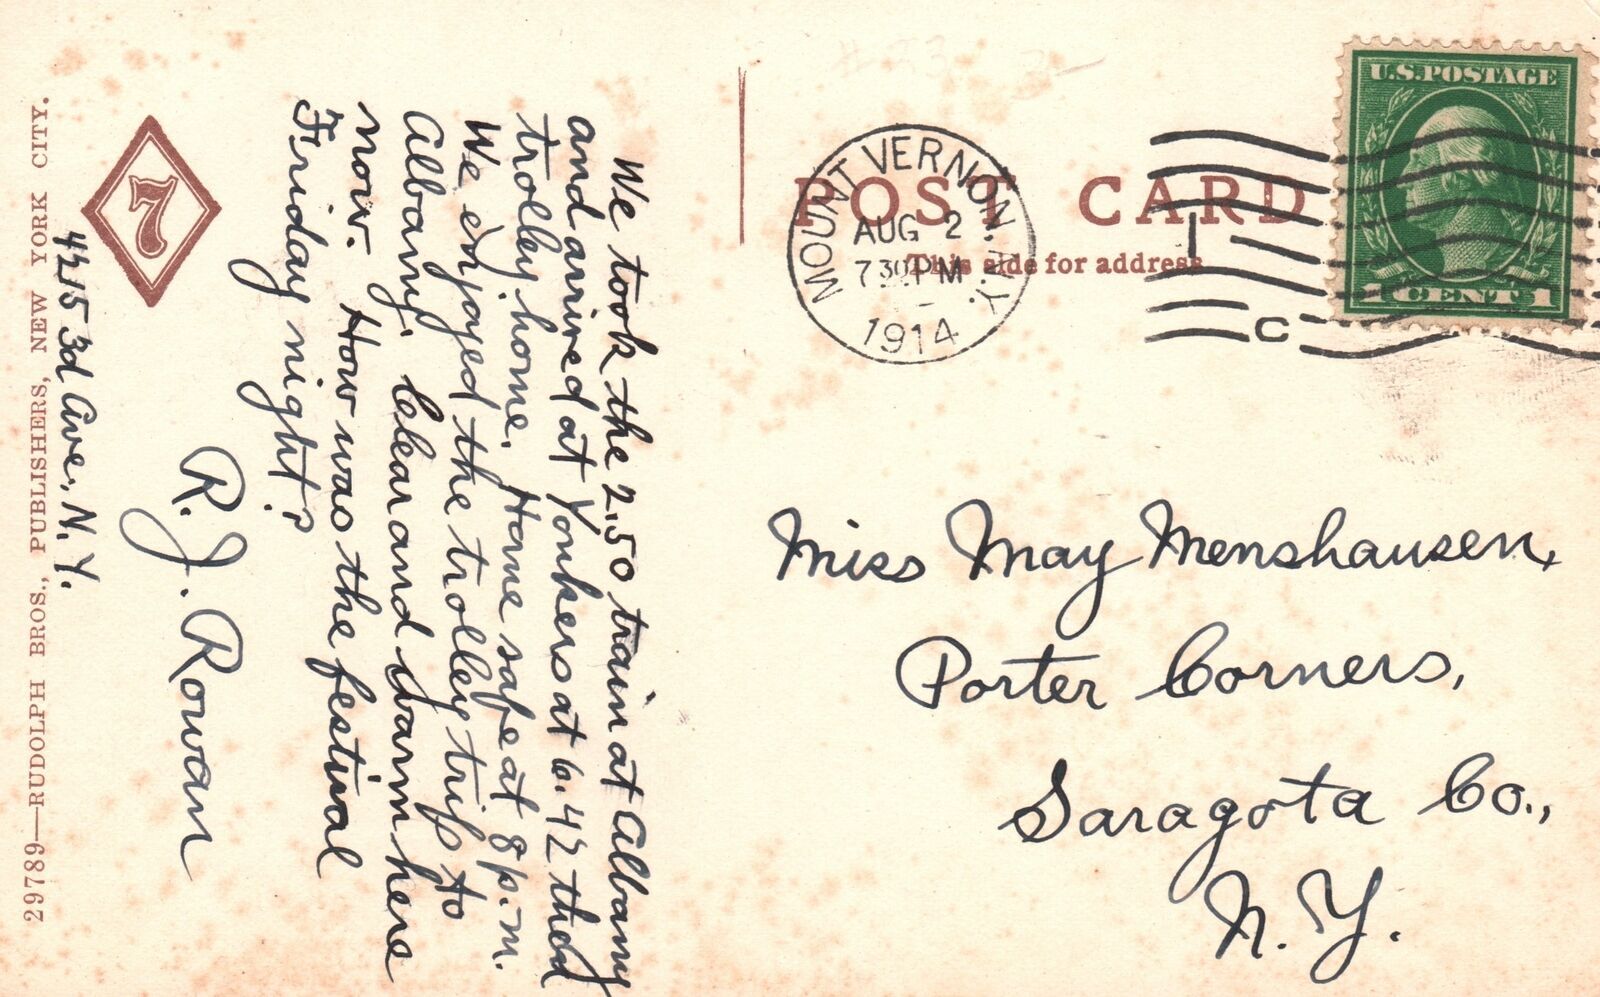 We took the 2.50 train at Albany
and arrived at Yonkers at 6.42 then
trolley home. Home safe at 8 p.m.
We enjoyed the trolley trip to
Albany. Clear and warm here
now. How was the festival
Friday night?
R. J. Rowan
4215 3d Ave., N.Y.
29789—RUDOLPH BROS., PUBLISHERS, NEW YORK CITY.
7
POST CARD
This side for address
MOUNT VERNON, N.Y.
AUG 2
7 30 PM
1914
C
U.S. POSTAGE
1 CENT 1
Miss May Menshausen,
Porter Corners,
Saragota Co.,
N. Y.